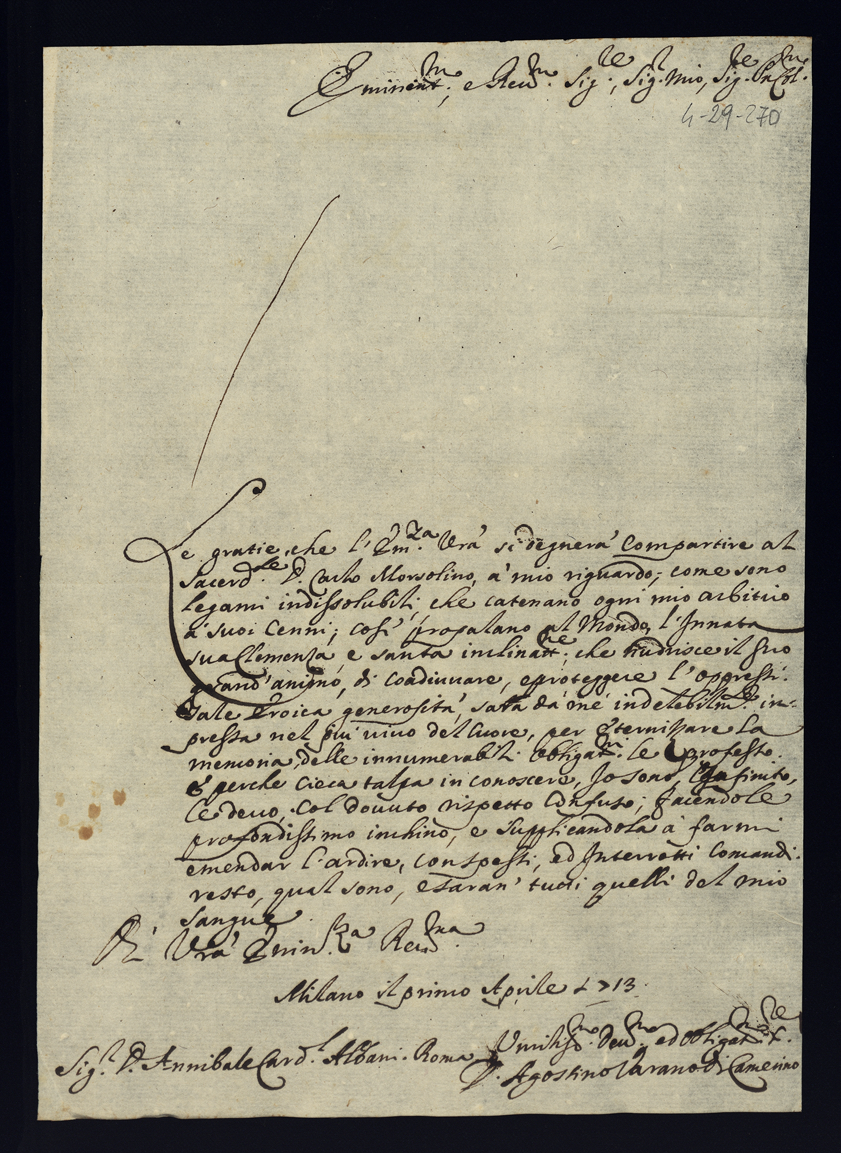 Eminent.mo, e Reu.mo Sig.re, Sig.r mio, Sig.re P.n Col.mo
4-29-270
Le gratie, che l'Em.za Vrā si degnerà Compartire al
Sacerd.le D. Carlo Morsolino, à mio riguardo, come sono
legami indissolubili, che catenano ogni mio arbitrio
a' suoi Cenni; cosi propalano al Mondo, l'Innata
sua Clemenza, e santa inclinatt.ne, che nudrisce il suo
grand'animo, di Coadiuuare, e proteggere l'oppressi.
Tale Eroica generosità, sarà da mè indelebilm.te im-
pressa nel più viuo del Cuore, per Eternizzare La
memoria, delle innumerabili obligat.ni le professo.
E perche Cieca talpa in conoscere, Io sono,
Le deuo, Col douuto rispetto Confuso; facendole
profondissimo inchino, e Supplicandola à farmi
emendar l'ardire, Con spessi, ed Interrotti Comandi.
resto, qual sono, e saran' tutti quelli del mio
sangue
Di Vrā Emin.za Reu.ma
Milano il primo Aprile 1713.
Sig.r D. Annibale Card.l Albani. Roma
Umiliss.mo Deu.mo ed obligat.mo
D. Agostino Varano di Camerino